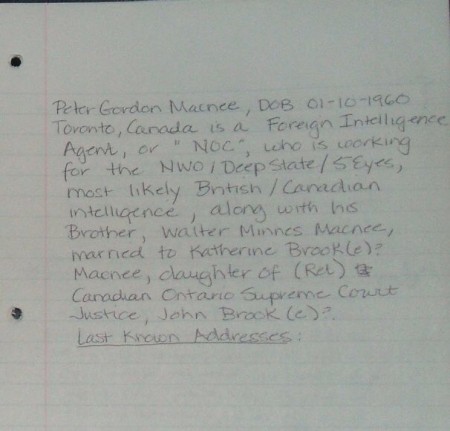 Peter Gordon Macnee, DOB 01-10-1960
Toronto, Canada is a Foreign Intelligence
Agent, or "NOC", who is working
for the NWO/Deep State/5 Eyes,
most likely British/Canadian
intelligence, along with his
Brother, Walter Minnes Macnee,
married to Katherine Brook(e)?
Macnee, daughter of (Ret)
Canadian Ontario Supreme Court
Justice, John Brook(e)?.
Last Known Addresses: